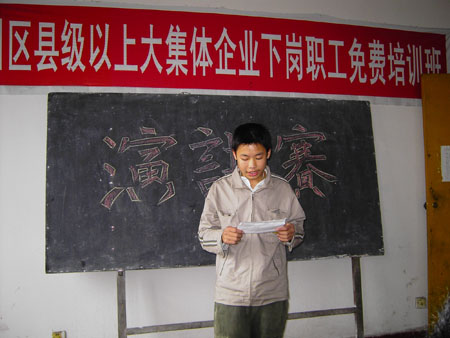 区县级以上大集体企业下岗职工免费培训班
演講賽